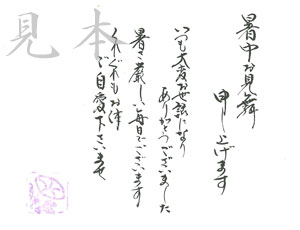 見本
暑中お見舞
申し上げます
いつも大変お世話になり
ありがとうございました
暑さ厳しい毎日でございます
くれぐれもお体
ご自愛下さいませ